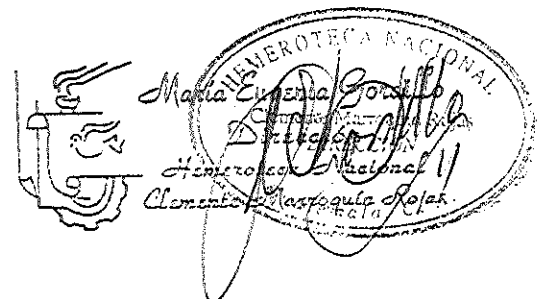 HEMEROTECA NACIONAL
María Eugenia Gordillo
Dirección
Hemeroteca Nacional
Clemente Marroquín Rojas